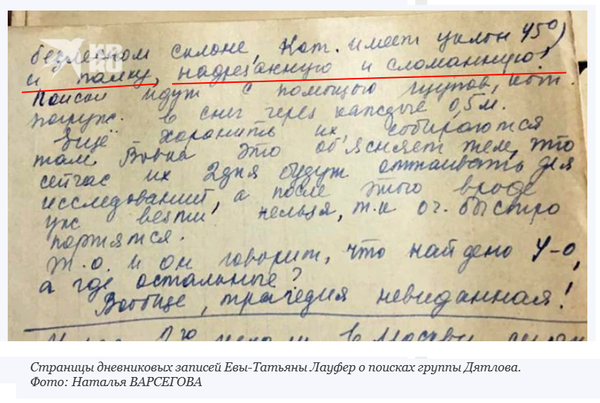 безлесном склоне, кот. имеет уклон 45°)
и палку, надрезанную и сломанную!
Поиски идут с помощью щупов, кот.
погруж. в снег через каждые 0,5 м.
Ещё хоранить их собираются
там. Вовка это об'ясняет тем, что
сейчас их 2 дня будут оттаивать для
исследований, а после этого вроде
уже везти нельзя, т.к оч. быстро
портятся.
Т.о. и он говорит, что найдено 4-о,
а где остальные?
Вообще, трагедия невиданная!
KP
Страницы дневниковых записей Евы-Татьяны Лауфер о поисках группы Дятлова.
Фото: Наталья ВАРСЕГОВА